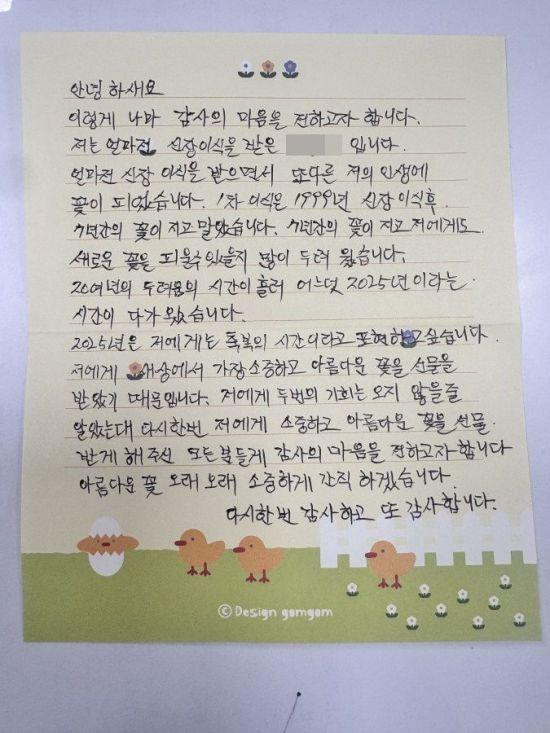 안녕 하새요
이렇게 나마 감사의 마음을 전하고자 합니다.
저는 얼마전 신장이식을 받은 입니다.
얼마전 신장 이식을 받으면서 또다른 저의 인생에
꽃이 피었습니다. 1차 이식은 1999년 신장 이식후
7년간의 꽃이 지고 말았습니다. 7년간의 꽃이 지고 저에게도
새로운 꽃을 피울수 있을지 많이 두려 웠습니다.
20여년의 두려움의 시간이 흘러 어느덧 2025년 이라는
시간이 다가 왔습니다.
2025년은 저에게는 축복의 시간이라고 표현하고싶습니다.
저에게 새상에서 가장소중하고 아름다운 꽃을 선물을
받았기 때문입니다. 저에게 두번의 기회는 오지 않을줄
알았는대 다시한번 저에게 소중하고 아름다운 꽃을 선물.
받게 해 주신 모든 분들게 감사의 마음을 전하고자합니다
아름다운 꽃 오래 오래 소중하게 간직 하겠습니다.
다시한번 감사하고 또 감사합니다.
ⓒDesign gomgom